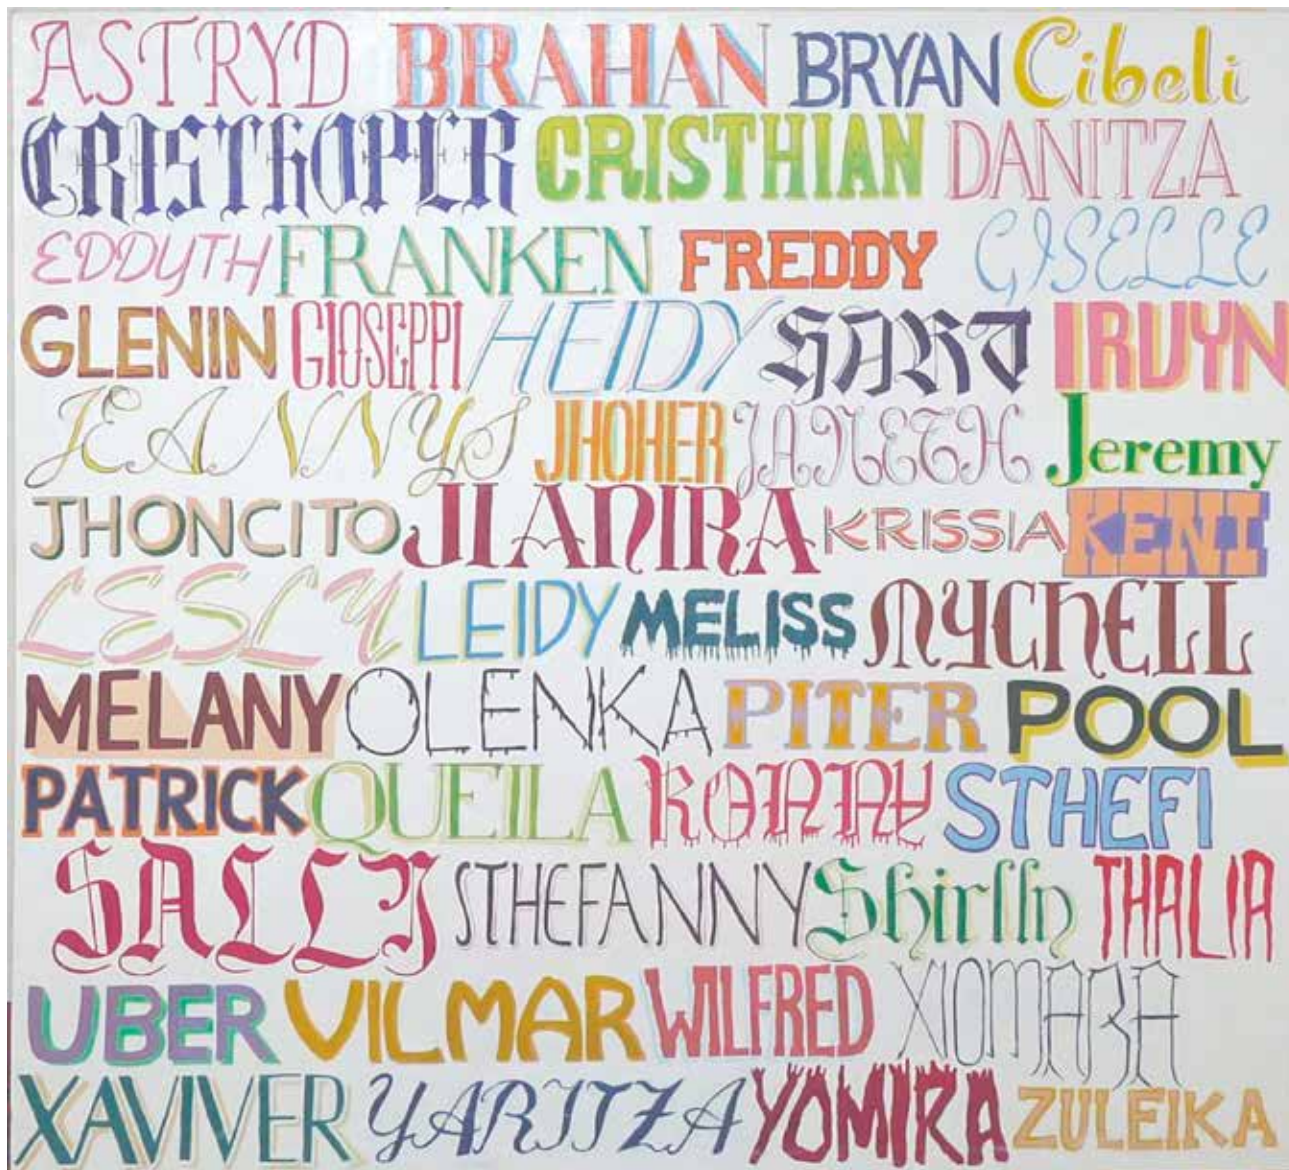 ASTRYD BRAHAN BRYAN Cibeli
CRISTHOPER CRISTHIAN DANITZA
EDDYTH FRANKEN FREDDY GISELLE
GLENIN GIOSEPPI HEIDY IRVYN
JEANNYS JHOHER JANETH Jeremy
JHONCITO JIANIRA KRISSIA KENI
LESLY LEIDY MELISS MYCHELL
MELANY OLENKA PITER POOL
PATRICK QUEILA RONNY STHEFI
SALLY STHEFANNY Shirlly THALIA
UBER VILMAR WILFRED XIOMARA
XAVIVER YARITZA YOMIRA ZULEIKA